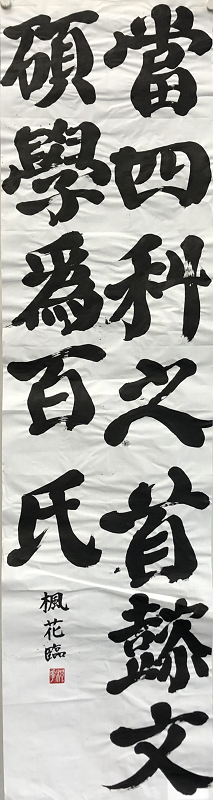 當四科之首懿文
碩學為百氏
楓花臨